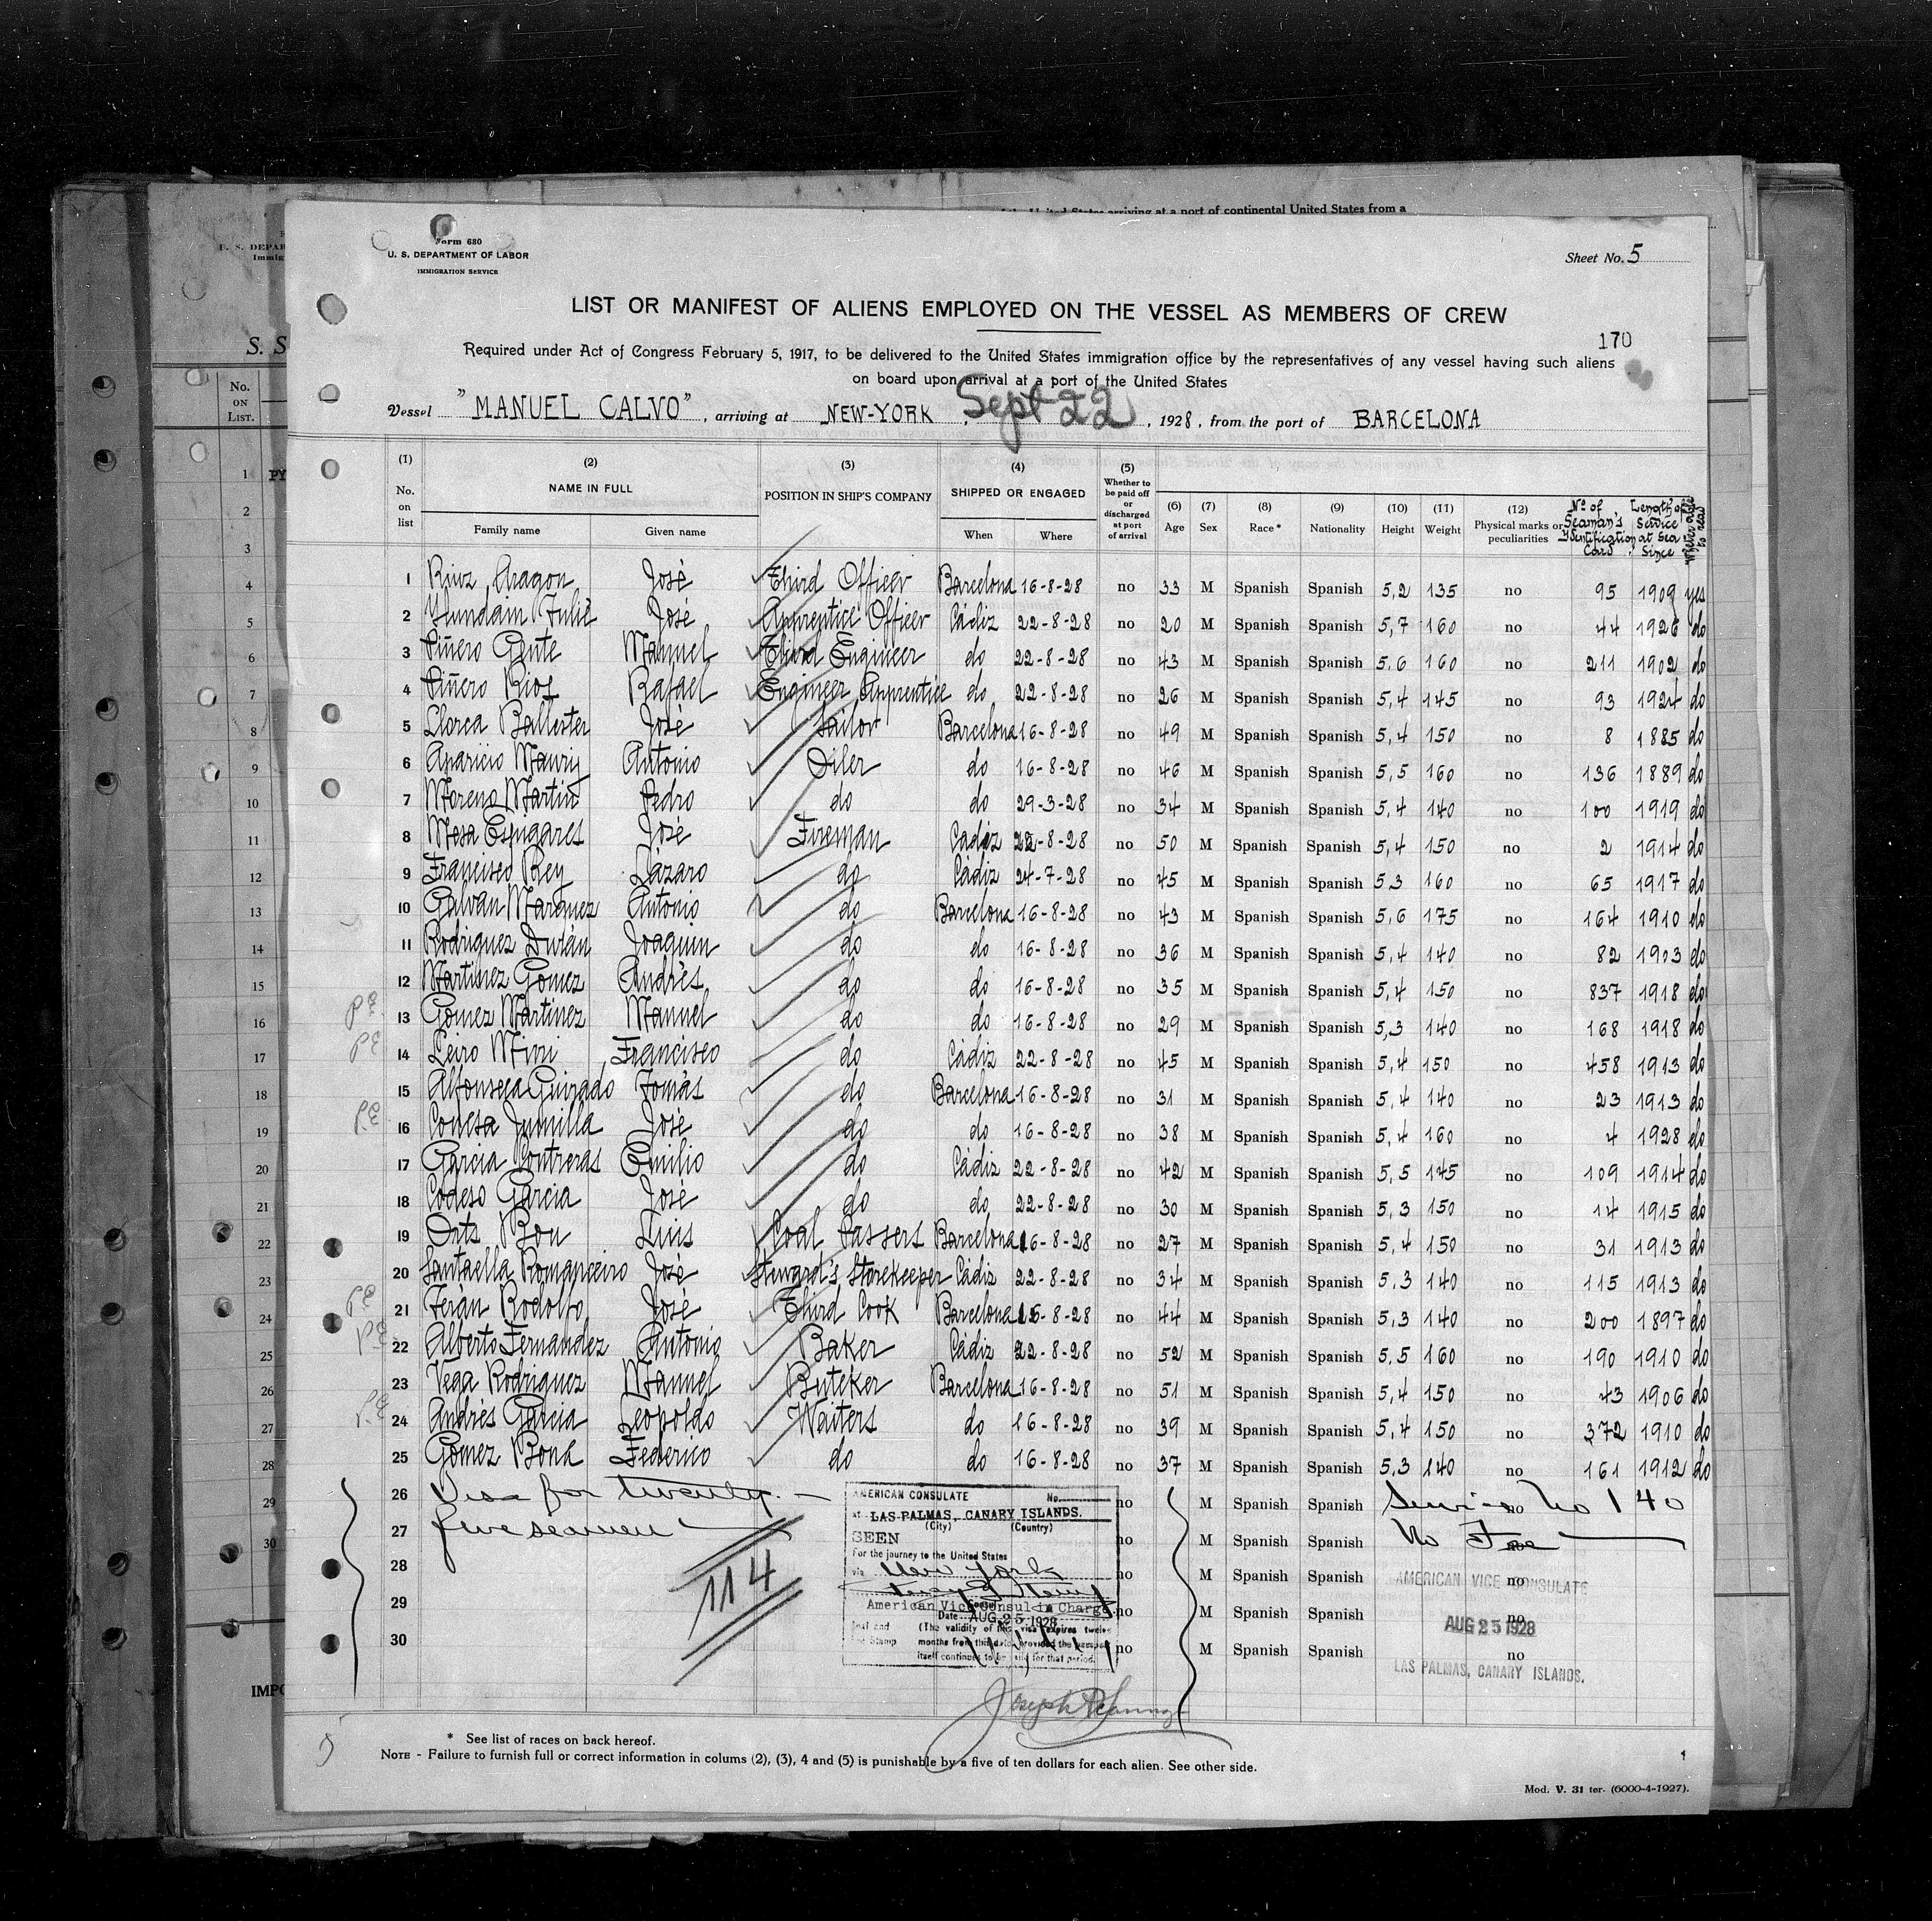 of the United States arriving at a port of continental United States from a
Form 680
U. S. DEPARTMENT OF LABOR
IMMIGRATION SERVICE
Sheet No. 5
LIST OR MANIFEST OF ALIENS EMPLOYED ON THE VESSEL AS MEMBERS OF CREW
170
Required under Act of Congress February 5, 1917, to be delivered to the United States immigration office by the representatives of any vessel having such aliens
on board upon arrival at a port of the United States
Vessel "MANUEL CALVO", arriving at NEW-YORK, Sept 22, 1928, from the port of BARCELONA
(1) No. on list (2) NAME IN FULL Family name Given name (3) POSITION IN SHIP'S COMPANY (4) SHIPPED OR ENGAGED When Where (5) Whether to be paid off or discharged at port of arrival (6) Age (7) Sex (8) Race* (9) Nationality (10) Height (11) Weight (12) Physical marks or peculiarities Nº of Seaman's Identification Card Length of Service at Sea Since Whether able to read
1 Aragon José Third Officer Barcelona 16-8-28 no 33 M Spanish Spanish 5,2 135 no 95 1909 yes
2 José Apprentice Officer Cádiz 22-8-28 no 20 M Spanish Spanish 5,7 160 no 44 1926 do
3 Piñero Gente Manuel Third Engineer do 22-8-28 no 43 M Spanish Spanish 5,6 160 no 211 1902 do
4 Piñero Rios Rafael Engineer Apprentice do 22-8-28 no 26 M Spanish Spanish 5,4 145 no 93 1924 do
5 Llorca Ballester José Sailor Barcelona 16-8-28 no 49 M Spanish Spanish 5,4 150 no 8 1885 do
6 Aparicio Maury Antonio Oiler do 16-8-28 no 46 M Spanish Spanish 5,5 160 no 136 1889 do
7 Moreno Martin Pedro do do 29-3-28 no 34 M Spanish Spanish 5,4 140 no 100 1919 do
8 Mesa Espigares José Fireman Cadiz 22-8-28 no 50 M Spanish Spanish 5,4 150 no 2 1914 do
9 Francisco Rey Lázaro do Cádiz 24-7-28 no 45 M Spanish Spanish 5,3 160 no 65 1917 do
10 Galván Marquez Antonio do Barcelona 16-8-28 no 43 M Spanish Spanish 5,6 175 no 164 1910 do
11 Rodriguez Durán Joaquin do do 16-8-28 no 36 M Spanish Spanish 5,4 140 no 82 1903 do
12 Martinez Gomez Andrés do do 16-8-28 no 35 M Spanish Spanish 5,4 150 no 837 1918 do
13 Gomez Martinez Manuel do do 16-8-28 no 29 M Spanish Spanish 5,3 140 no 168 1918 do
14 Leiro Francisco do Cádiz 22-8-28 no 45 M Spanish Spanish 5,4 150 no 458 1913 do
15 Alfonseca Guirado Tomás do Barcelona 16-8-28 no 31 M Spanish Spanish 5,4 140 no 23 1913 do
16 Conesa Jumilla José do do 16-8-28 no 38 M Spanish Spanish 5,4 160 no 4 1928 do
17 Garcia Contreras Emilio do Cádiz 22-8-28 no 42 M Spanish Spanish 5,5 145 no 109 1914 do
18 Codeso Garcia José do do 22-8-28 no 30 M Spanish Spanish 5,3 150 no 14 1915 do
19 Orts Bou Luis Coal Passers Barcelona 16-8-28 no 27 M Spanish Spanish 5,4 150 no 31 1913 do
20 Santaella Romanceiro José Steward's Storekeeper Cádiz 22-8-28 no 34 M Spanish Spanish 5,3 140 no 115 1913 do
21 Feran Rodolfo José Third Cook Barcelona 16-8-28 no 44 M Spanish Spanish 5,3 140 no 200 1897 do
22 Alberto Fernandez Antonio Baker Cádiz 22-8-28 no 52 M Spanish Spanish 5,5 160 no 190 1910 do
23 Vega Rodriguez Manuel Buteker Barcelona 16-8-28 no 51 M Spanish Spanish 5,4 150 no 43 1906 do
24 Andrés Garcia Leopoldo Waiters do 16-8-28 no 39 M Spanish Spanish 5,4 150 no 372 1910 do
25 Gomez Bonk Federico do do 16-8-28 no 37 M Spanish Spanish 5,3 140 no 161 1912 do
26 Visa for twenty- no M Spanish Spanish no Service No 140
27 five seamen no M Spanish Spanish no No Fee
28 no M Spanish Spanish no
29 no M Spanish Spanish no
30 no M Spanish Spanish no
114
AMERICAN CONSULATE No.
at LAS PALMAS, CANARY ISLANDS.
(City) (Country)
SEEN
For the journey to the United States
via New York
American Vice Consul in Charge
Date AUG 25 1928
(The validity of this visa expires twelve
months from this date, provided the passport
itself continues to be valid for that period.)
AMERICAN VICE CONSULATE
AUG 25 1928
LAS PALMAS, CANARY ISLANDS.
* See list of races on back hereof.
NOTE - Failure to furnish full or correct information in colums (2), (3), 4 and (5) is punishable by a five of ten dollars for each alien. See other side.
Mod. V. 31 ter. (6000-4-1927).